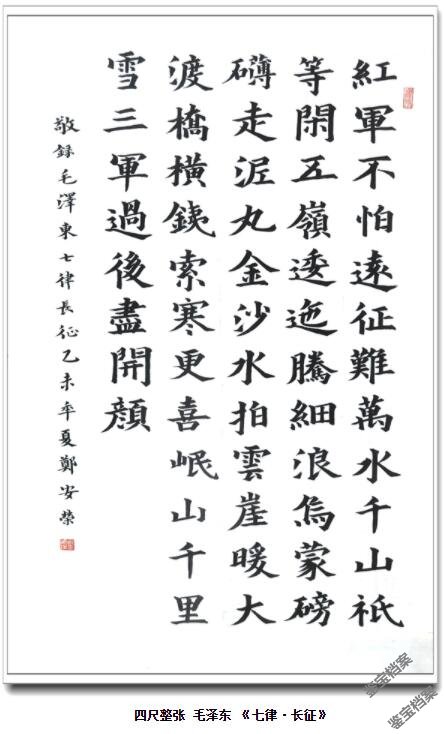 紅軍不怕遠征難萬水千山祇
等閑五嶺逶迤騰細浪烏蒙磅
礴走泥丸金沙水拍雲崖暖大
渡橋橫銕索寒更喜岷山千里
雪三軍過後盡開顏
敬録毛澤東七律長征乙未年夏鄭安榮
四尺整张 毛泽东 《七律·长征》
鉴宝档案
鉴宝档案